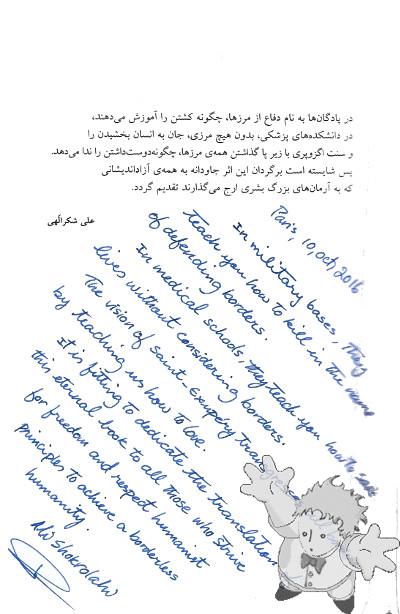 در پادگان‌ها به نام دفاع از مرزها، چگونه کشتن را آموزش می‌دهند،
در دانشکده‌های پزشکی، بدون هیچ مرزی، جان به انسان بخشیدن را
و سنت اگزوپری با زیر پا گذاشتن همه‌ی مرزها، چگونه‌دوست‌داشتن را ندا می‌دهد.
پس شایسته است برگردان این اثر جاودانه به همه‌ی آزاداندیشانی
که به آرمان‌های بزرگ بشری ارج می‌گذارند تقدیم گردد.
علی شکرالهی
Paris, 10, oct, 2016
In military bases, they
teach you how to kill in the name
of defending borders.
In medical schools, they teach you how to save
lives without considering borders.
The vision of Saint-Exupéry
by teaching us how to love.
It is fitting to dedicate the translation
this eternal book to all those who strive
for freedom and respect humanist
principles to achieve a borderless
humanity.
Shokrolahi